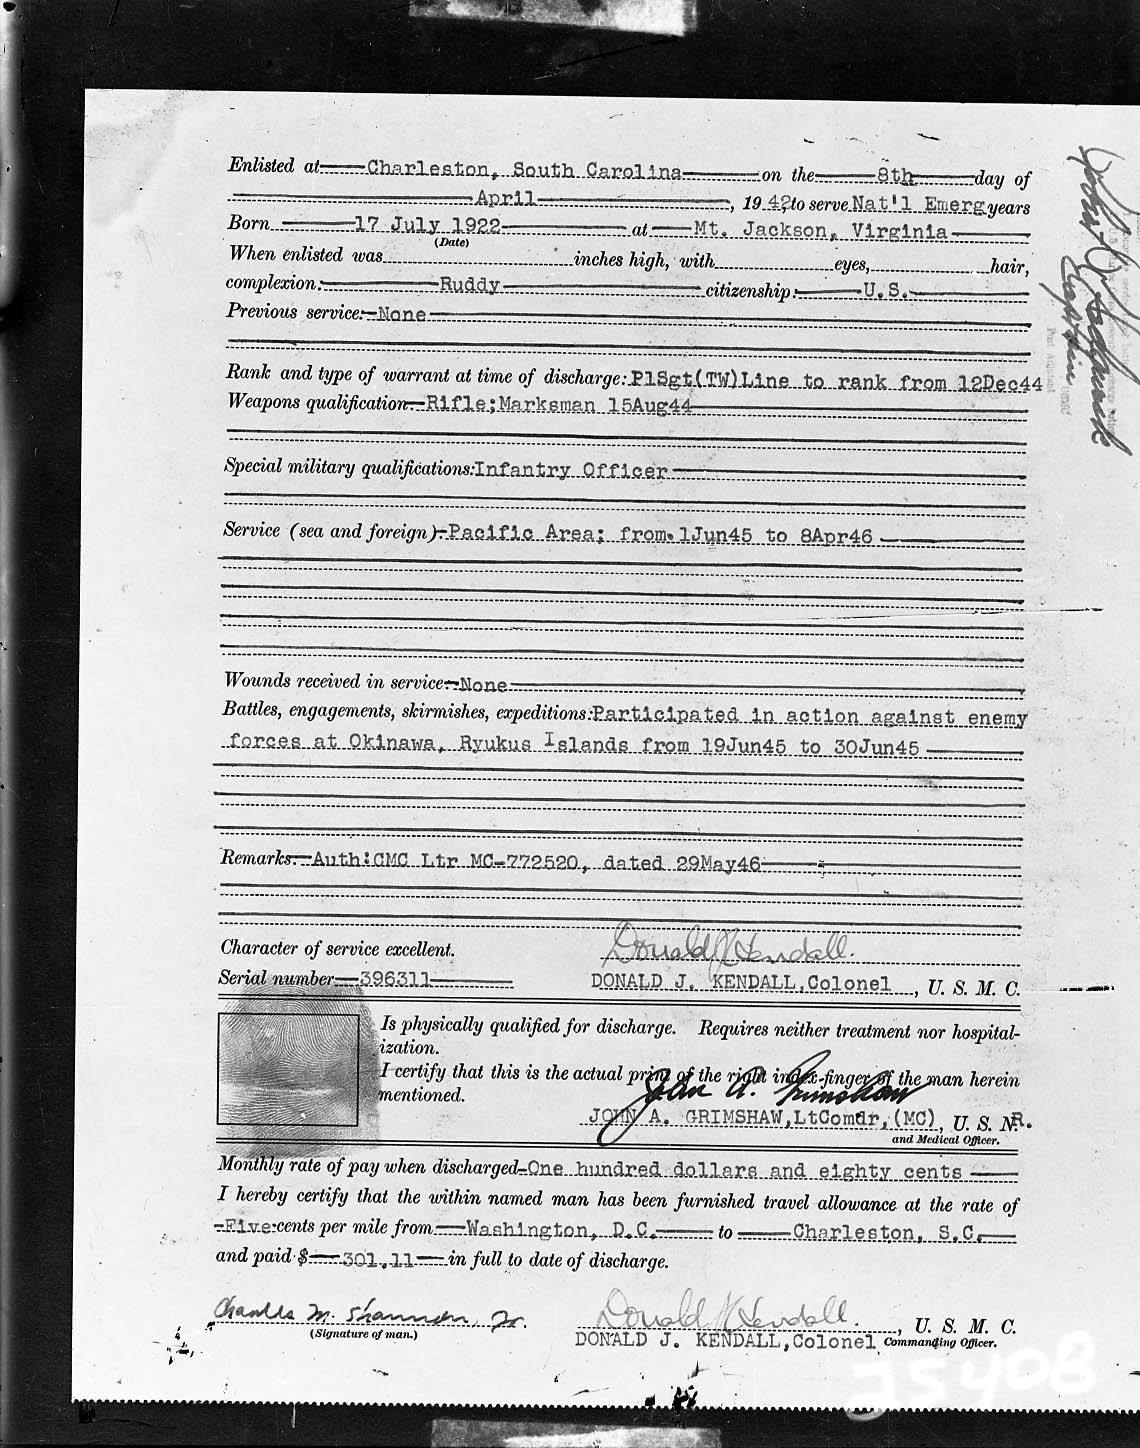 Enlisted at Charleston, South Carolina on the 8th day of
April, 1942 to serve Nat'l Emerg years
Born 17 July 1922 at Mt. Jackson, Virginia
(Date)
When enlisted was inches high, with eyes, hair,
complexion: Ruddy citizenship: U.S.
Previous service: None
Rank and type of warrant at time of discharge: PlSgt(TW)Line to rank from 12Dec44
Weapons qualification Rifle;Marksman 15Aug44
Special military qualifications: Infantry Officer
Service (sea and foreign) Pacific Area; from 1Jun45 to 8Apr46
Wounds received in service: None
Battles, engagements, skirmishes, expeditions: Participated in action against enemy
forces at Okinawa, Ryukus Islands from 19Jun45 to 30Jun45
Remarks: Auth:CMC Ltr MC-772520, dated 29May46
Character of service excellent. Donald J Kendall.
Serial number 396311 DONALD J. KENDALL,Colonel, U. S. M. C.
Is physically qualified for discharge. Requires neither treatment nor hospital-
ization.
I certify that this is the actual print of the right index-finger of the man herein
mentioned. John A. Grimshaw
JOHN A. GRIMSHAW,LtComdr,(MC), U. S. N.R.
and Medical Officer.
Monthly rate of pay when discharged-One hundred dollars and eighty cents
I hereby certify that the within named man has been furnished travel allowance at the rate of
-Five-cents per mile from Washington, D.C. to Charleston, S.C.
and paid $ 301.11 in full to date of discharge.
Charles M. Shannon, Jr. Donald J Kendall.
(Signature of man.) , U. S. M. C.
DONALD J. KENDALL,Colonel Commanding Officer.